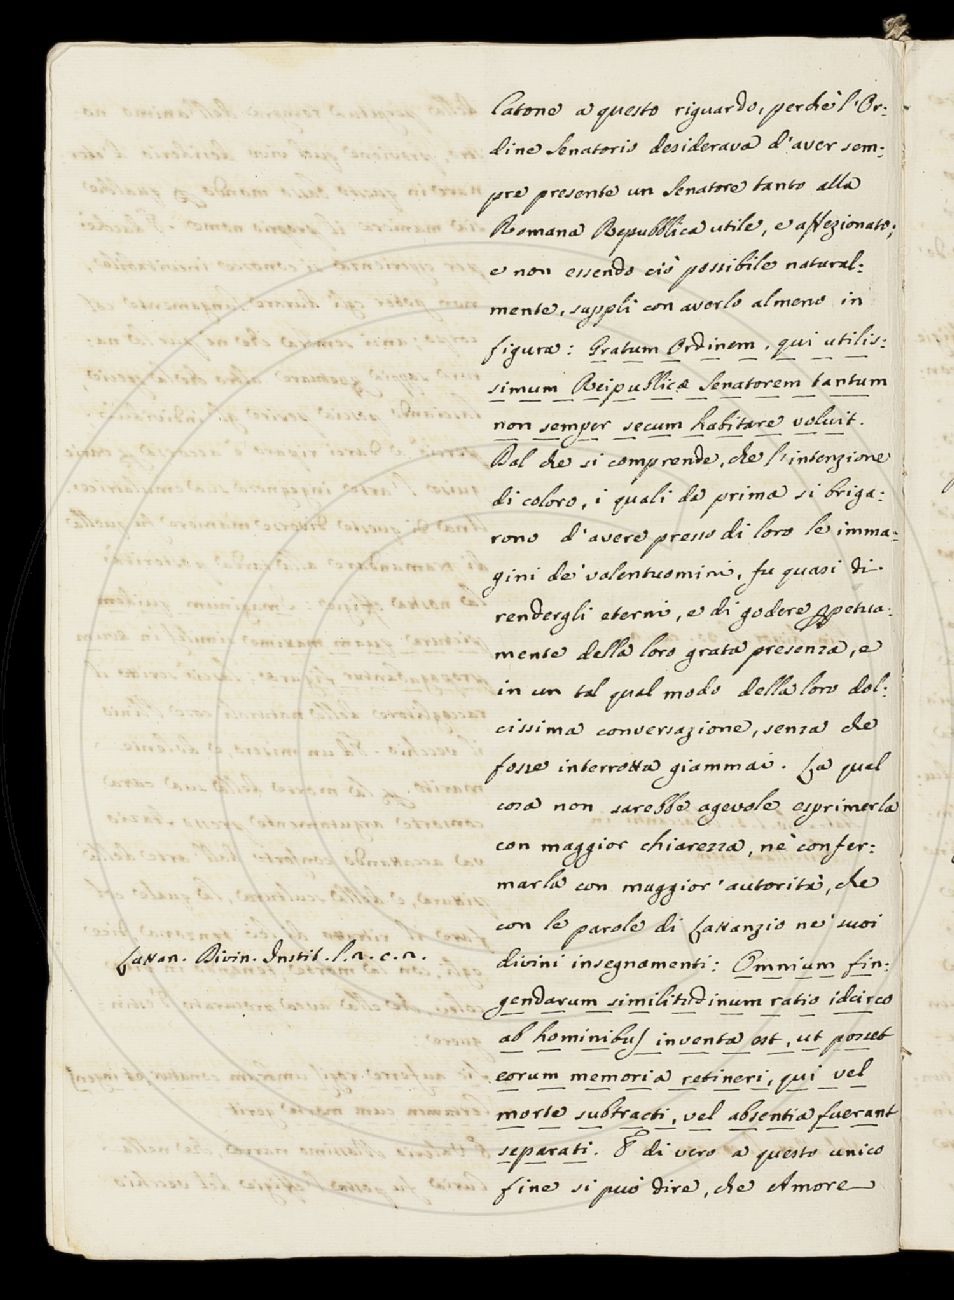 Catone a questo riguardo, perchè l'Or:
dine Senatorio desiderava d'aver sem:
pre presente un Senatore tanto alla
Romana Repubblica utile, e affezionato;
e non essendo ciò possibile natural:
mente, supplì con averlo almeno in
figura: Gratum Ordinem, qui utilis:
simum Reipublicæ Senatorem tantum
non semper secum habitare voluit.
Dal che si comprende, che l'intenzione
di coloro, i quali da prima si briga:
rono d'avere presso di loro le imma:
gini de' valentuomini, fu quasi di
rendergli eterni, e di godere ppetua:
mente della loro grata presenza, e
in un tal qual modo della loro dol:
cissima conversazione, senza che
fosse interrotta giammai. La qual
cosa non sarebbe agevole esprimerla
con maggior chiarezza, nè confer:
marla con maggior' autorità, che
con le parole di Lattanzio ne' suoi
Lattan. Divin. Instit. l. 2. c. 2.
divini insegnamenti: Omnium fin:
gendarum similitudinum ratio idcirco
ab hominibus inventa est, ut posset
eorum memoria retineri, qui vel
morte subtracti, vel absentia fuerant
separati. E di vero a questo unico
fine si può dire, che Amore